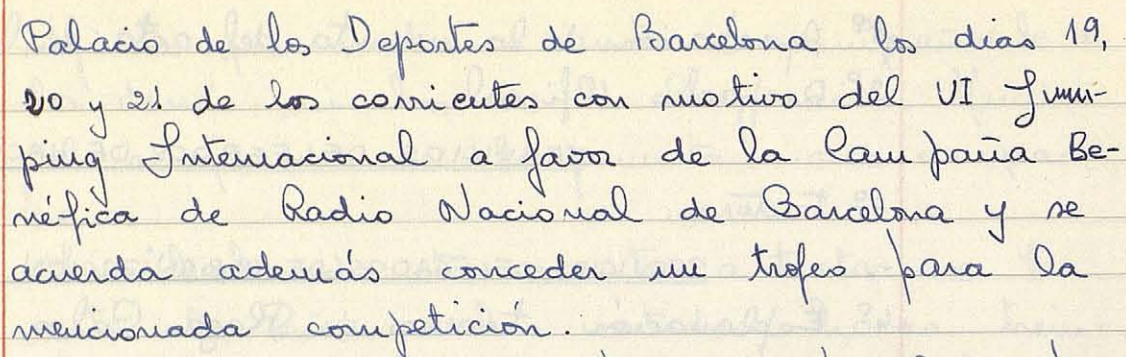 Palacio de los Deportes de Barcelona los dias 19,
20 y 21 de los corrientes con motivo del VI Jum-
ping Internacional a favor de la Campaña Be-
néfica de Radio Nacional de Barcelona y se
acuerda además conceder un trofeo para la
mencionada competición.